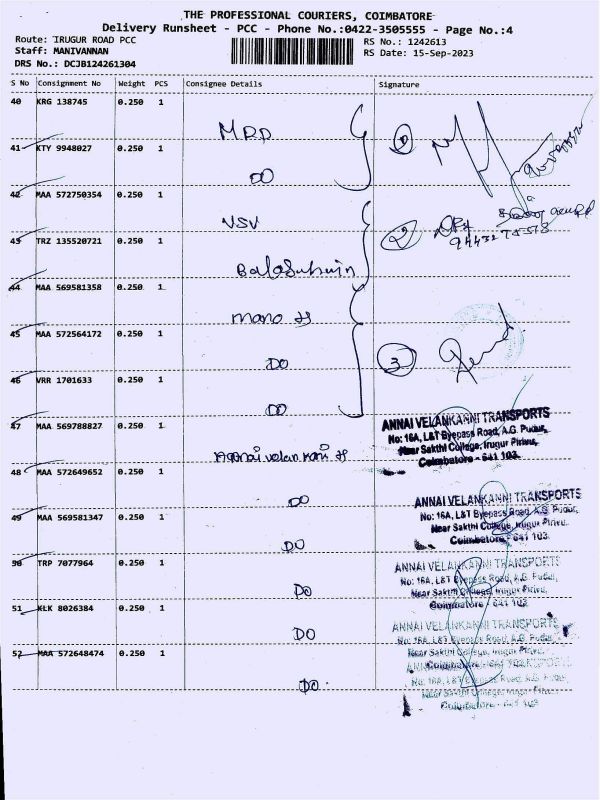 THE PROFESSIONAL COURIERS, COIMBATORE
Delivery Runsheet - PCC - Phone No.:0422-3505555 - Page No.:4
Route: IRUGUR ROAD PCC
RS No.: 1242613
Staff: MANIVANNAN
RS Date: 15-Sep-2023
DRS No.: DCJB124261304
S No Consignment No Weight PCS Consignee Details Signature
40 KRG 138745 0.250 1
MRD
1
41 KTY 9948027 0.250 1
DO
42 MAA 572750354 0.250 1
VSV
2
9443278518
43 TRZ 135520721 0.250 1
44 MAA 569581358 0.250 1
45 MAA 572564172 0.250 1
DO
3
46 VRR 1701633 0.250 1
DO
47 MAA 569788827 0.250 1
ANNAI VELANKANNI TRANSPORTS
No: 16A, L&T Byepass Road, A.G. Pudur,
Near Sakthi College, Irugur Pirivu,
Coimbatore - 641 103.
48 MAA 572649652 0.250 1
DO
ANNAI VELANKANNI TRANSPORTS
No: 16A, L&T Byepass Road, A.G. Pudur,
Near Sakthi College, Irugur Pirivu,
Coimbatore - 641 103.
49 MAA 569581347 0.250 1
DO
50 TRP 7077964 0.250 1
DO
ANNAI VELANKANNI TRANSPORTS
No: 16A, L&T Byepass Road, A.G. Pudur,
Near Sakthi College, Irugur Pirivu,
Coimbatore - 641 103.
51 KLK 8026384 0.250 1
DO
ANNAI VELANKANNI TRANSPORTS
No: 16A, L&T Byepass Road, A.G. Pudur,
Near Sakthi College, Irugur Pirivu,
Coimbatore - 641 103.
52 MAA 572648474 0.250 1
DO
ANNAI VELANKANNI TRANSPORTS
No: 16A, L&T Byepass Road, A.G. Pudur,
Near Sakthi College, Irugur Pirivu,
Coimbatore - 641 103.